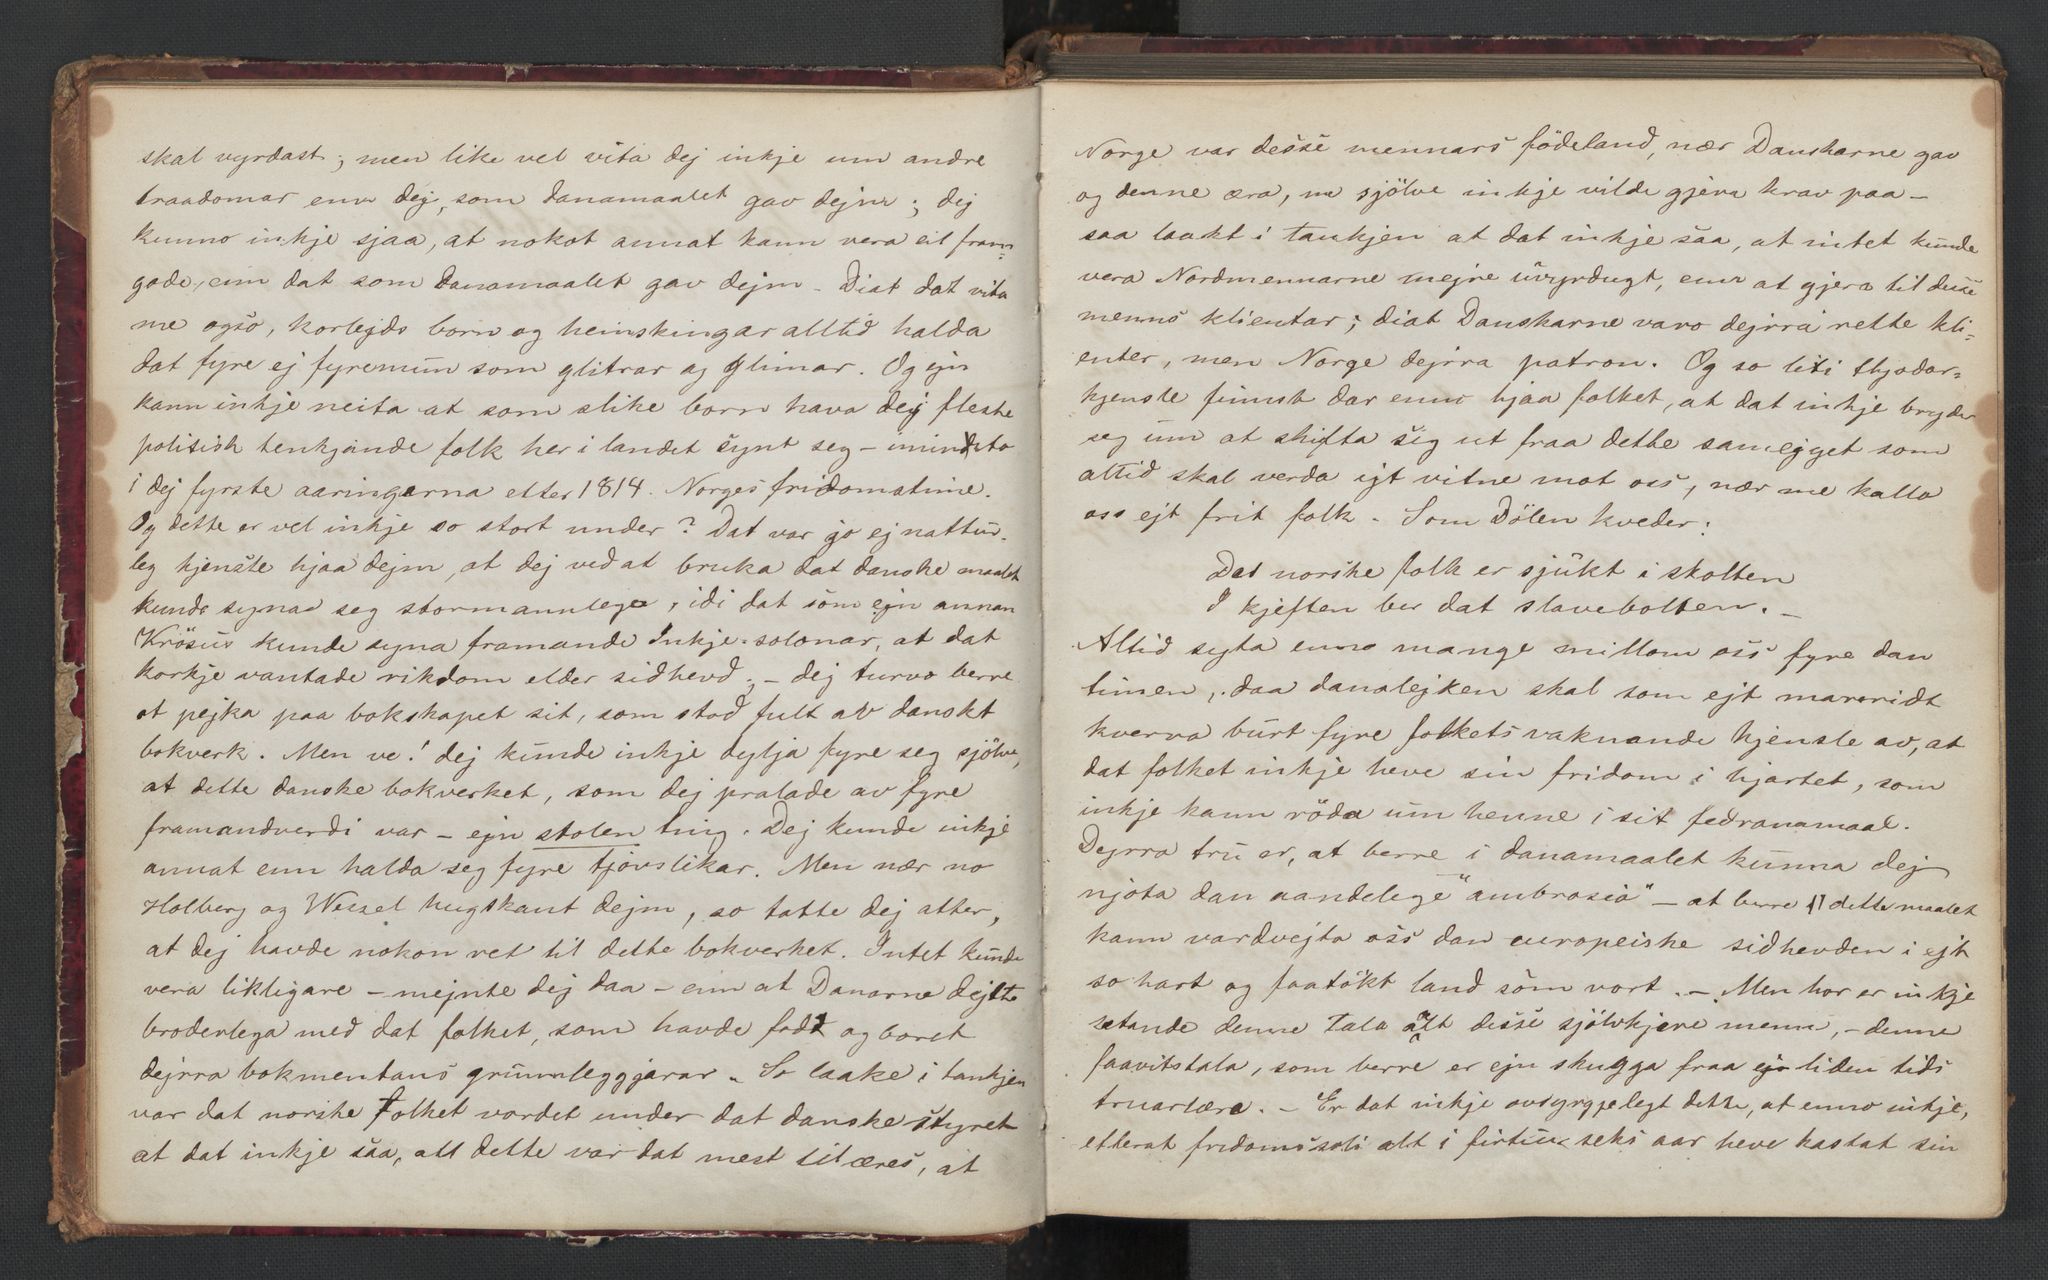 skal vyrdast; men like vel vita dej inkje um andre
traadomar enn dej, som danamaalet gav dejm; dej
kunno inkje sjaa, at nokot annat kann vera eit fram-
gode, enn dat som Danamaalet gav dejm – Diat dat vita
me ogso, korlejds born og heimskingar alltid halda
dat fyre ej fyremun som glitrar og glimar. Og ejn
kann inkje neita at som slike born hava dej fleste
politisk tenkjande folk her i landet synt seg – uminsto
i dej fyrste aaringarna etter 1814. Norges fridomatime.
Og dette er vel inkje so stort under? Dat var jo ej nattur-
leg kjensle hjaa dejm, at dej ved at bruka dat danske maalet
kunde synas seg stormannlege, idi dat som ejn annan
Krösus kunde syna framande Inkje-solonar, at dat
korkje vantade rikdom elder sidhevd; – dej turvo berre
at pejka paa bokskapet sit, som stod fult av danskt
bokverk. Men ve! dej kunde inkje dylja fyre seg sjölve,
at dette danske bokverket, som dej pralade av fyre
framandverdi var – ejn stolen ting. Dej kunde inkje
annat enn halda seg fyre tjövslikar. Men nær no
Holberg og Wessel hugskaut dejm, so totte dej atter,
at dej havde nokon ret til dette bokverket. Intet kunde
vera likligare – mejnte dej daa – enn at Danarne dejlte
broderlega med dat folket, som havde født og boret
dejrra bokmentans grunnleggjarar. So laake i tankjen
var dat norske folket vordet under dat danske styret
at dat inkje saa, att dette var dat mest til æres, at
Norge var desse mennars födeland, nær Danskarne gav
og denne æra, me sjölve inkje vilde gjera krav paa –
saa laakt i tankjen at dat inkje saa, at intet kunde
vera Nordmennarne mejre uvyrdugt, enn at gjera til desse
menns klientar; diat Danskarne varo dejrra rette kli-
enter, men Norge dejrra patron. Og so liti thjodar-
kjensle finnst dar enno hjaa folket, at dat inkje bryder
seg um at skifta sig ut fraa dette samejget som
altid skal verda ejt vitne mot oss, nær me kalla
oss ejt frit folk. Som Dölen kveder:
Dat norske folk er sjukt i skolten
I kjeften ber dat slavebolten. –
Altid syta enno mange millom oss fyre dan
timen, daa danalejken skal som ejt mareridt
kverva burt fyre folkets vaknande kjensle av, at
dat folket inkje heve sin fridom i hjartet, som
inkje kann röda um henne i sit fedranamaal.
Dejrra tru er, at berre i danamaalet kunna dej
njota dan aandelege "ambrosia" – at berre dette maalet
kann vardvejta oss dan europeiske sidhevden i ejt
so hart og faatökt land som vort. – Men hor er inkje
stande denne tala åt desse sjölvkjere menn, – denne
faavitstala, som berre er ejn skugga fraa ejn liden tids
truarlæra. – Er dat inkje ovsyrgjelegt dette, at enno inkje,
etterat fridomssoli alt i firtiu seks aar heve kastat sin